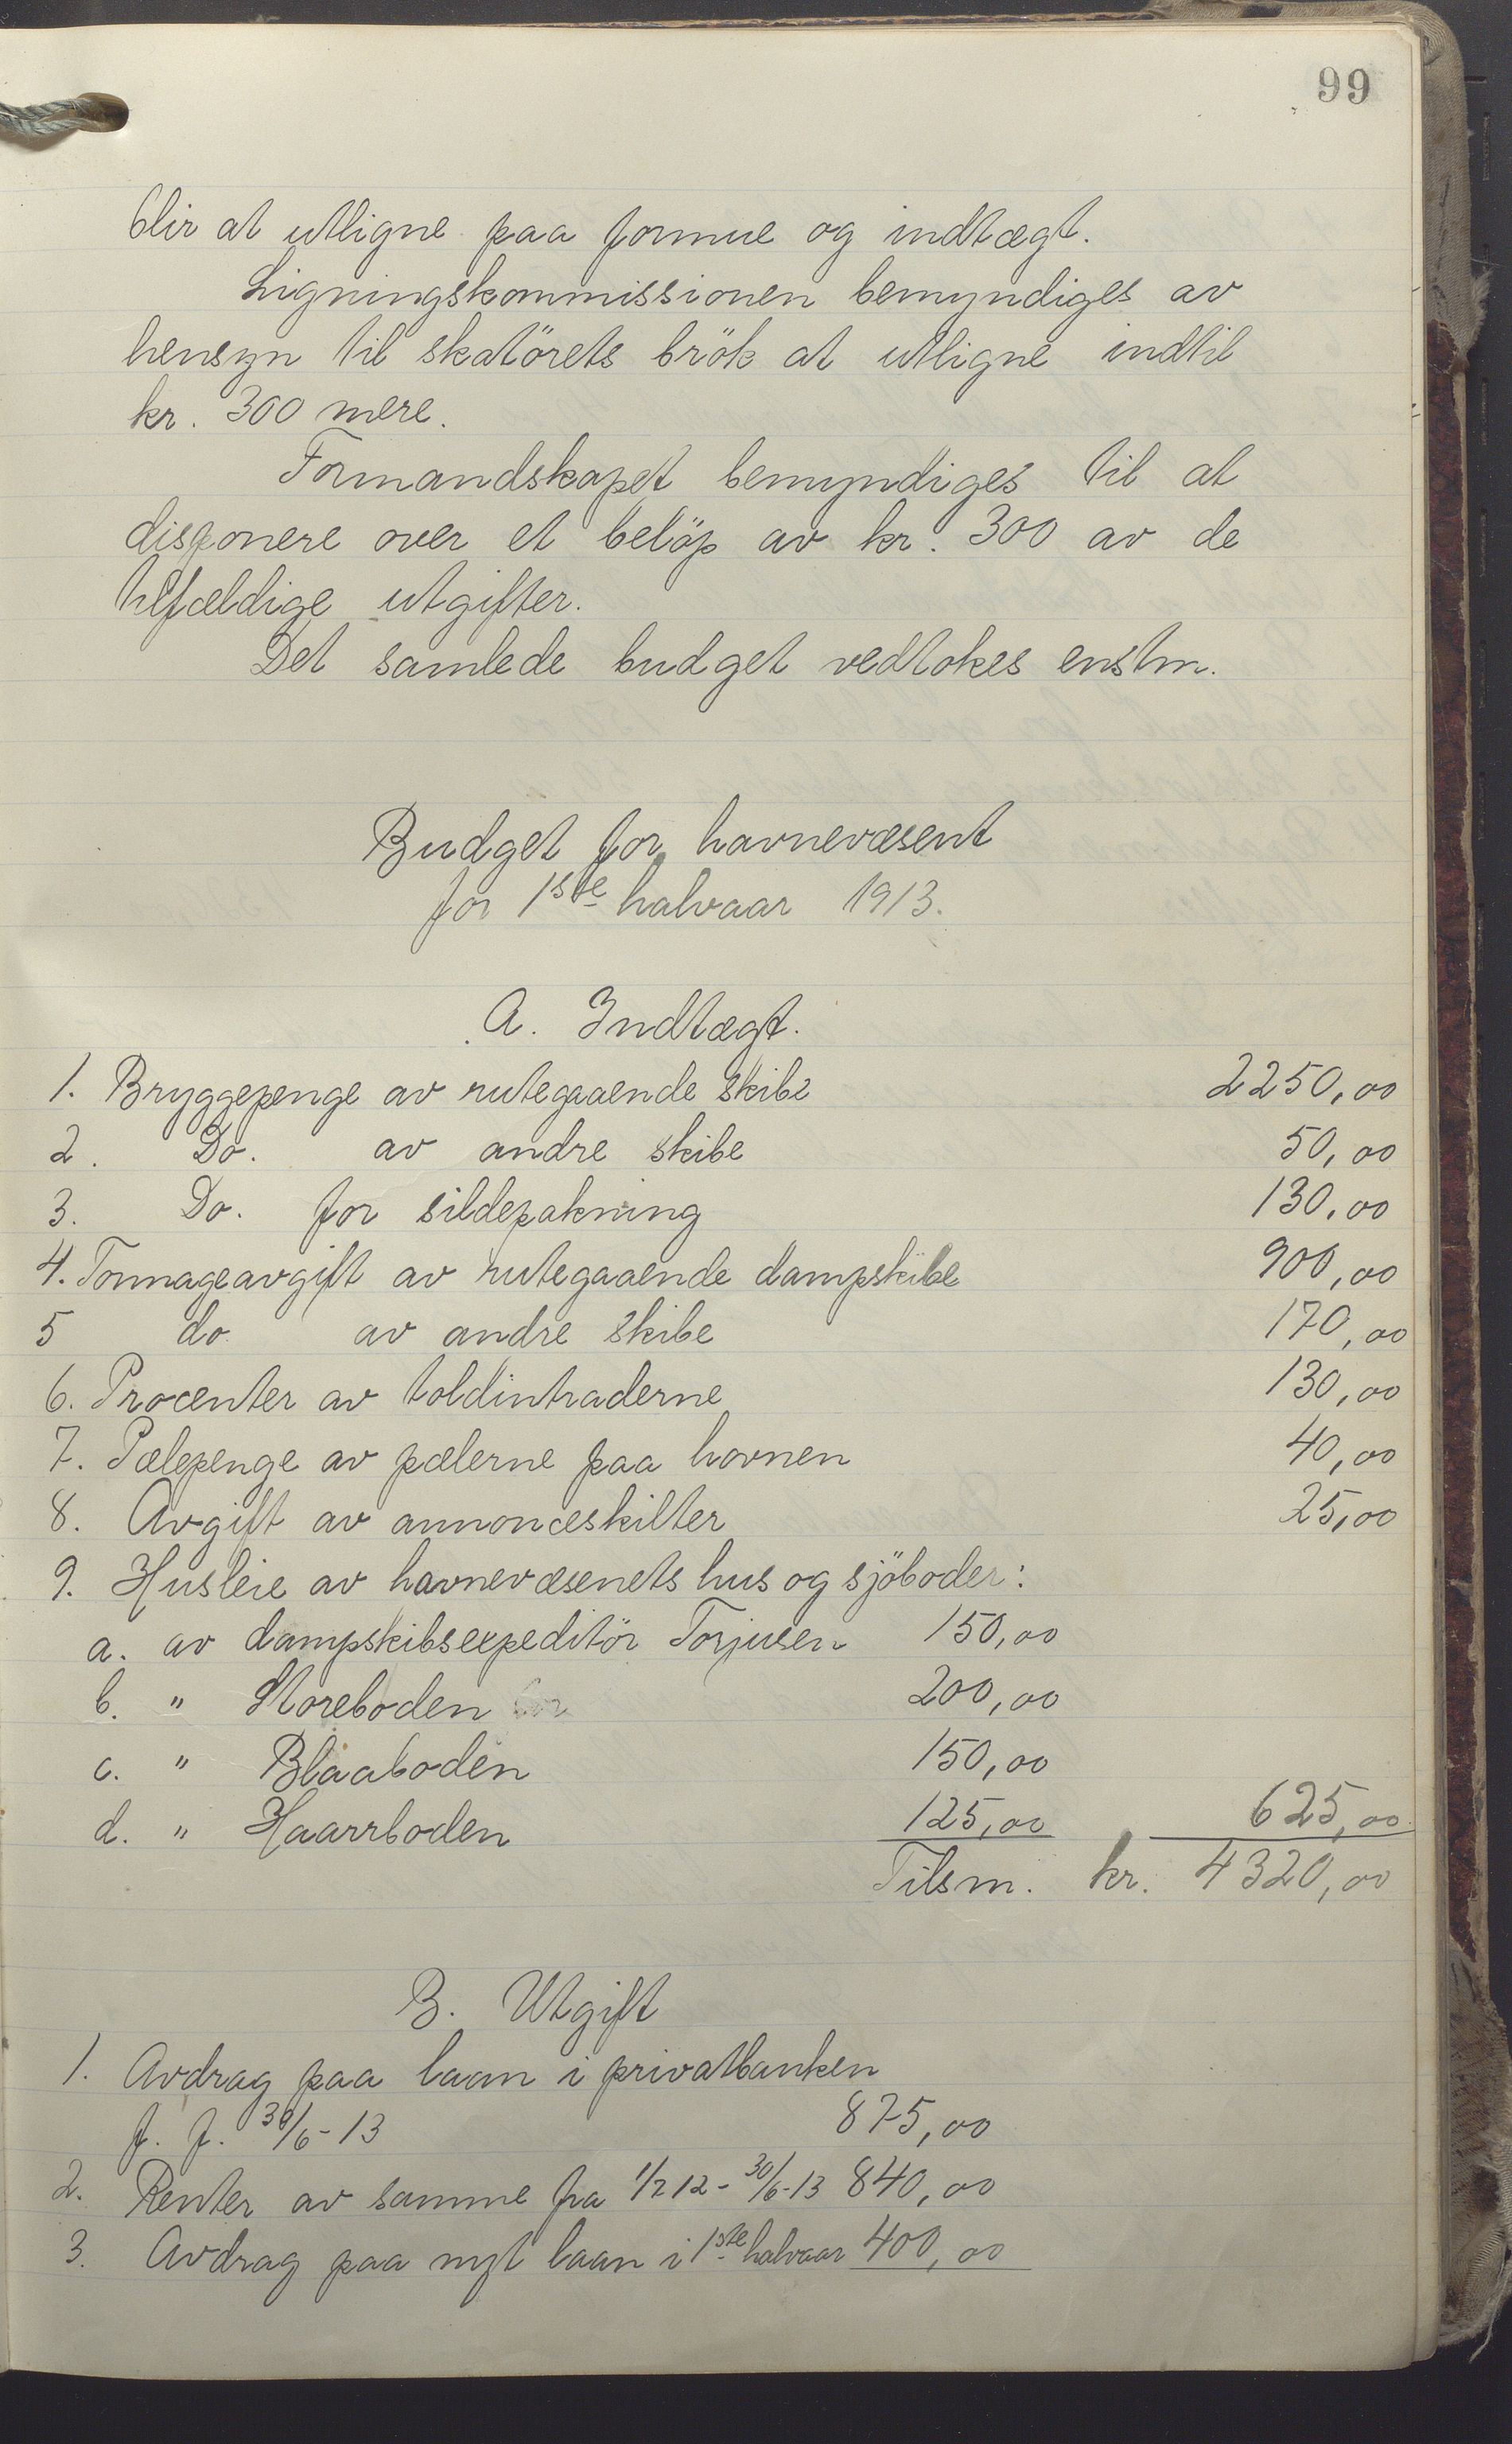 99
blir at utligne paa formue og indtægt.
Ligningskommissionen bemyndiges av
hensyn til skatörets brök at utligne indtil
kr. 300 mere.
Formandskapet bemyndiges til at
disponere over et belöp av kr. 300 av de
tilfældige utgifter.
Det samlede budget vedtokes enstm.
Budget for havnevæsent
for 1ste halvaar 1913.
A. Indtægt.
1. Bryggepenge av rutegaaende skibe 2250,00
2. Do. av andre skibe 50,00
3. Do. for sildepakning 130,00
4. Tonnageavgift av rutegaaende dampskibe 900,00
5 do av andre skibe 170,00
6. Procenter av toldintraderne 130,00
7. Pælepenge av pælerne paa havnen 40,00
8. Avgift av annonceskilter 25,00
9. Husleie av havnevæsenets hus og sjöboder:
a. av dampskibsexpeditör Torjusen 150,00
b. " Storeboden 200,00
c. " Blaaboden 150,00
d. " Haarrboden 125,00 625,00
Tilsm. kr. 4320,00
B. Utgift
1. Avdrag paa laan i privatbanken
f. f. 30/6-13 875,00
2. Renter av samme fra 1/7 12 - 30/6-13 840,00
3. Avdrag paa nyt laan i 1ste halvaar 400,00